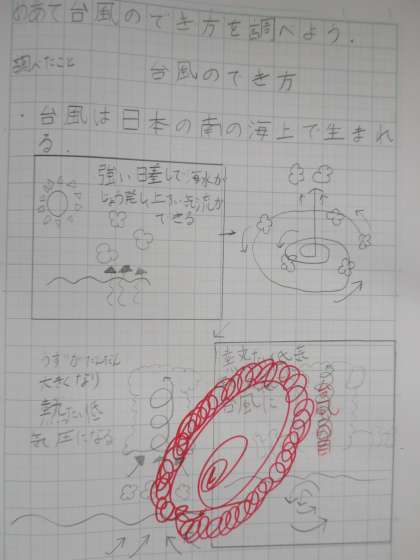 めあて台風のでき方を調べよう.
調べたこと
台風のでき方
・台風は日本の南の海上で生まれ
る.
強い日ざしで海水が
じょう発し上しょう気流が
できる
うずがだんだん
大きくなり
熱たい低
気圧になる
熱たい低気
台風に
L